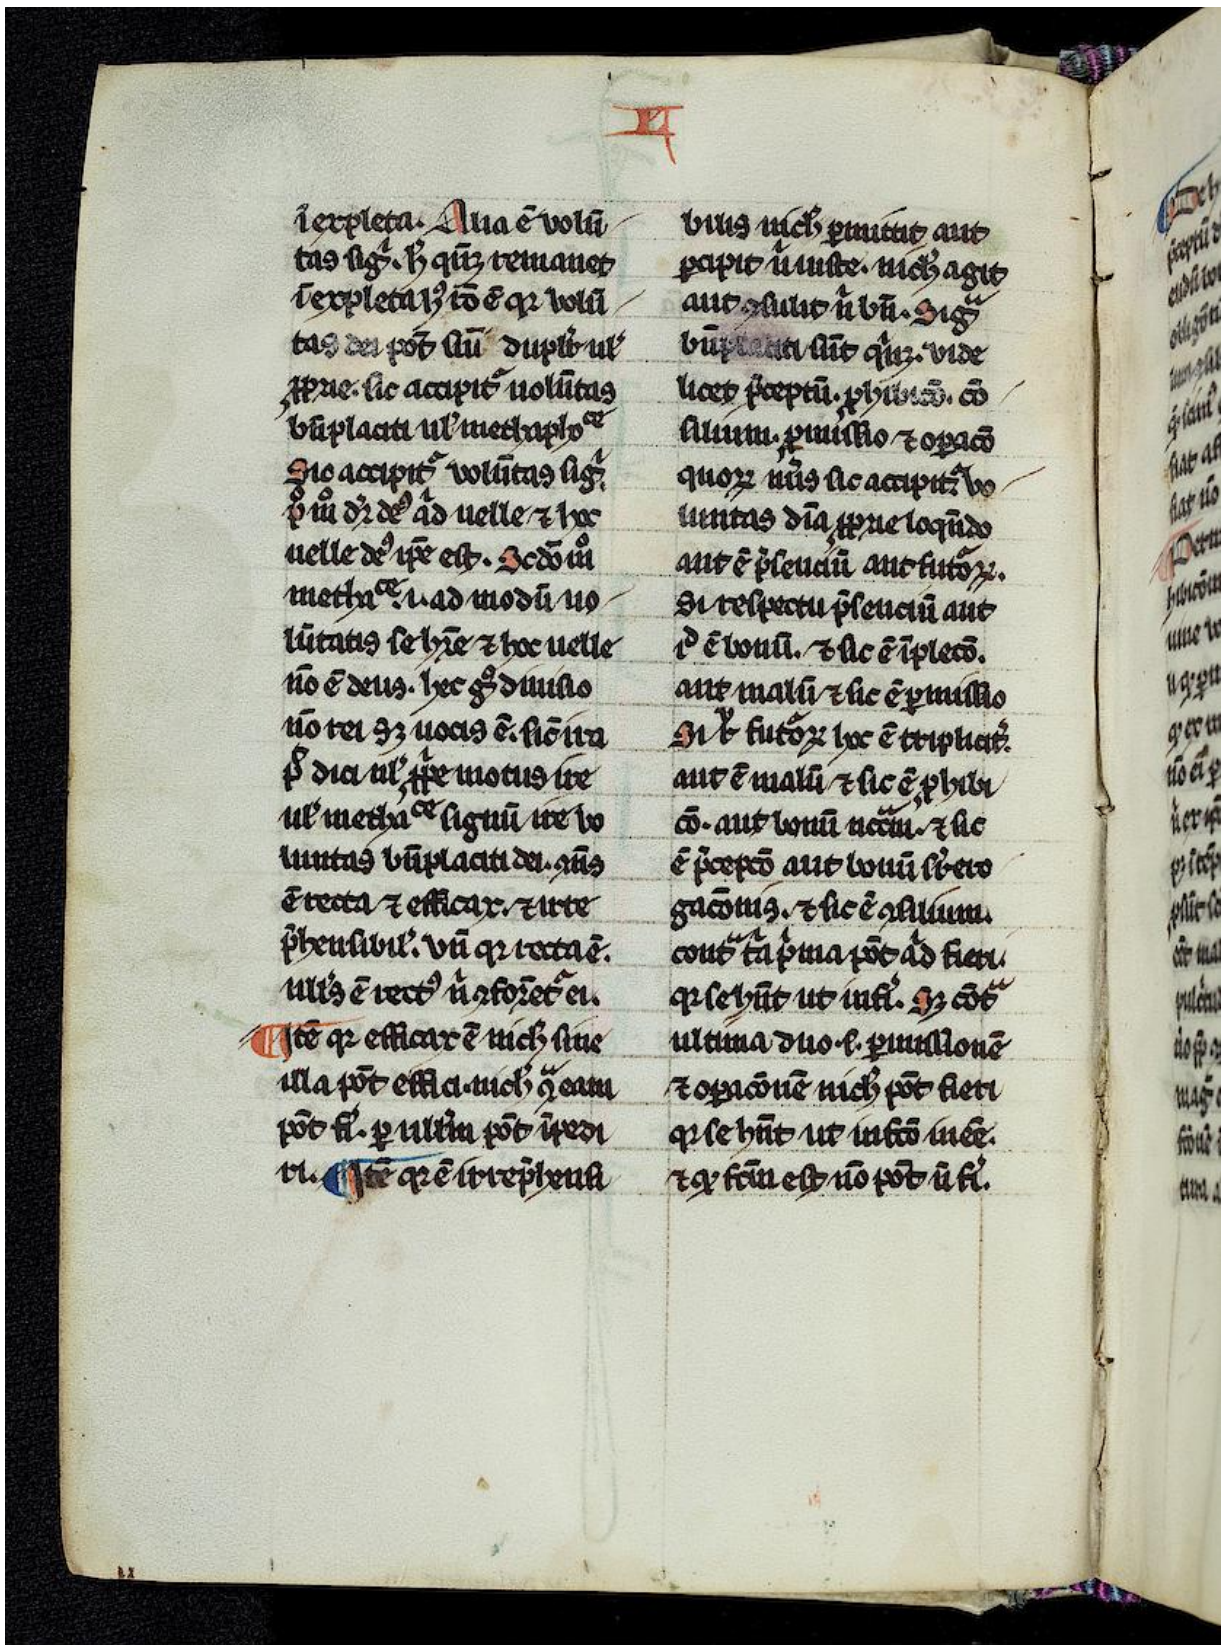 īexpleta. Alia ē volū
tas sigͣ. hꝫ qn̄qꝫ remanet
īexpleta hꝰ rō ē qꝛ volū
tas dei pōt sūi duplr̄ ul̓
ꝓprie. sic accipitᷣ uolūtas
bn̄placiti ul̓ methapho᷎ce
Sic accipitᷣ volūtas sigͣ.
pͦ mͦ dr̄ deꝰ qͥd uelle ⁊ hoc
uelle deꝰ ip̄e est. Scdō mͦ
metha᷎ce .i. ad modū uo
lūtatis se hr̄e ⁊ hoc uelle
nō ē deus. hec gͦ diuisio
nō rei sꝫ uocis ē. sic̄ ira
pͭ dici ul̓ ꝓp̄e motus ire
ul̓ metha᷎ce signū ire vo
luntas bn̄placiti dei. ꝯn̄s
ē recta ⁊ efficax. ⁊ irre
p̄hensibil̓. Vn̄ qꝛ recta ē.
ullꝰs ē rectꝰ nͥ ꝯformet᷑ ei.
Itē qꝛ efficax ē nichͥ sine
illa pōt effici. nichͥ qͣ eam
pōt fiͥ. ꝑ ullū pōt īpedi
ri. Itē qꝛ ē irrep̄hensi
bilis nichͥ ꝑmittit aut
p̄cipit nͥ iuste. nichͥ agit
aut ꝯsulit nͥ bn̄. Sigͣ
bn̄placiti sūt qͥnqꝫ. vide
licet p̄ceptū. ꝓhibicō. cō
silium. ꝑmissio ⁊ opacō
quoꝝ nūꝰs sic accipitᷣ. Vo
luntas diͣa ꝓprie loqn̄do
aut ē p̄senciū aut futoꝝ.
Si respectu p̄senciū aut
iͩ ē bonū. ⁊ sic ē īplecō.
aut malū ⁊ sic ē ꝑmissio
Si ūͦ futoꝝ hoc ē triplicitͥ.
aut ē malū ⁊ sic ē ꝓhibi
cō. aut bonū nccͣiū. ⁊ sic
ē p̄cepcō aut bonū sr̄ero
gacōnis. ⁊ sic ē ꝯsilium.
contͣ tͥa pͥma pōt qͥd fieri.
qꝛ se hn̄t ut in fiͥ. Sꝫ cōtͣ
ultima duo .s. ꝑmissionē
⁊ opacōnē nichͥ pōt fieri
qꝛ se hn̄t ut in fcō in eē.
⁊ qͩ fcm̄ est nō pōt nͦ fiͥ.